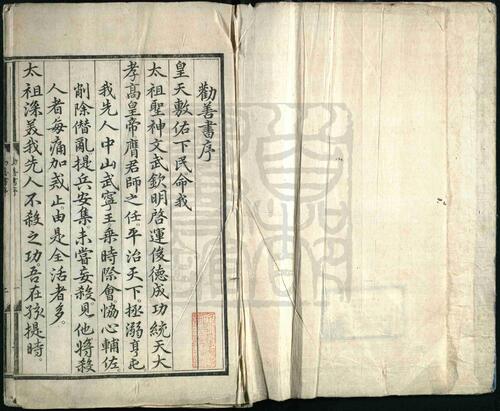 勸善書序
皇天敷佑下民命我
太祖聖神文武欽明啓運俊德成功統天大
孝高皇帝膺君師之任平治天下拯溺亨屯
我先人中山武寧王乘時際會恊心輔佐
削除僭亂提兵安集未嘗妄殺見他將殺
人者每痛加戒止由是全活者多
太祖深美我先人不殺之功吾在孩提時